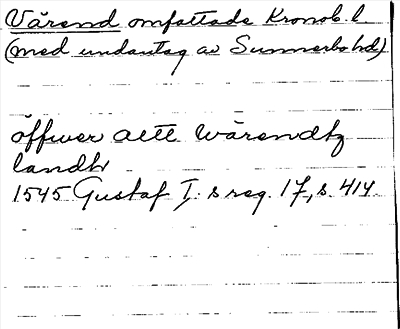 Värend omfattade Kronob. l
(med undantag av Sunnerbo hd)
öffwer altt Wärendtz
landtt
1545 Gustaf I:s reg. 17, s. 414.